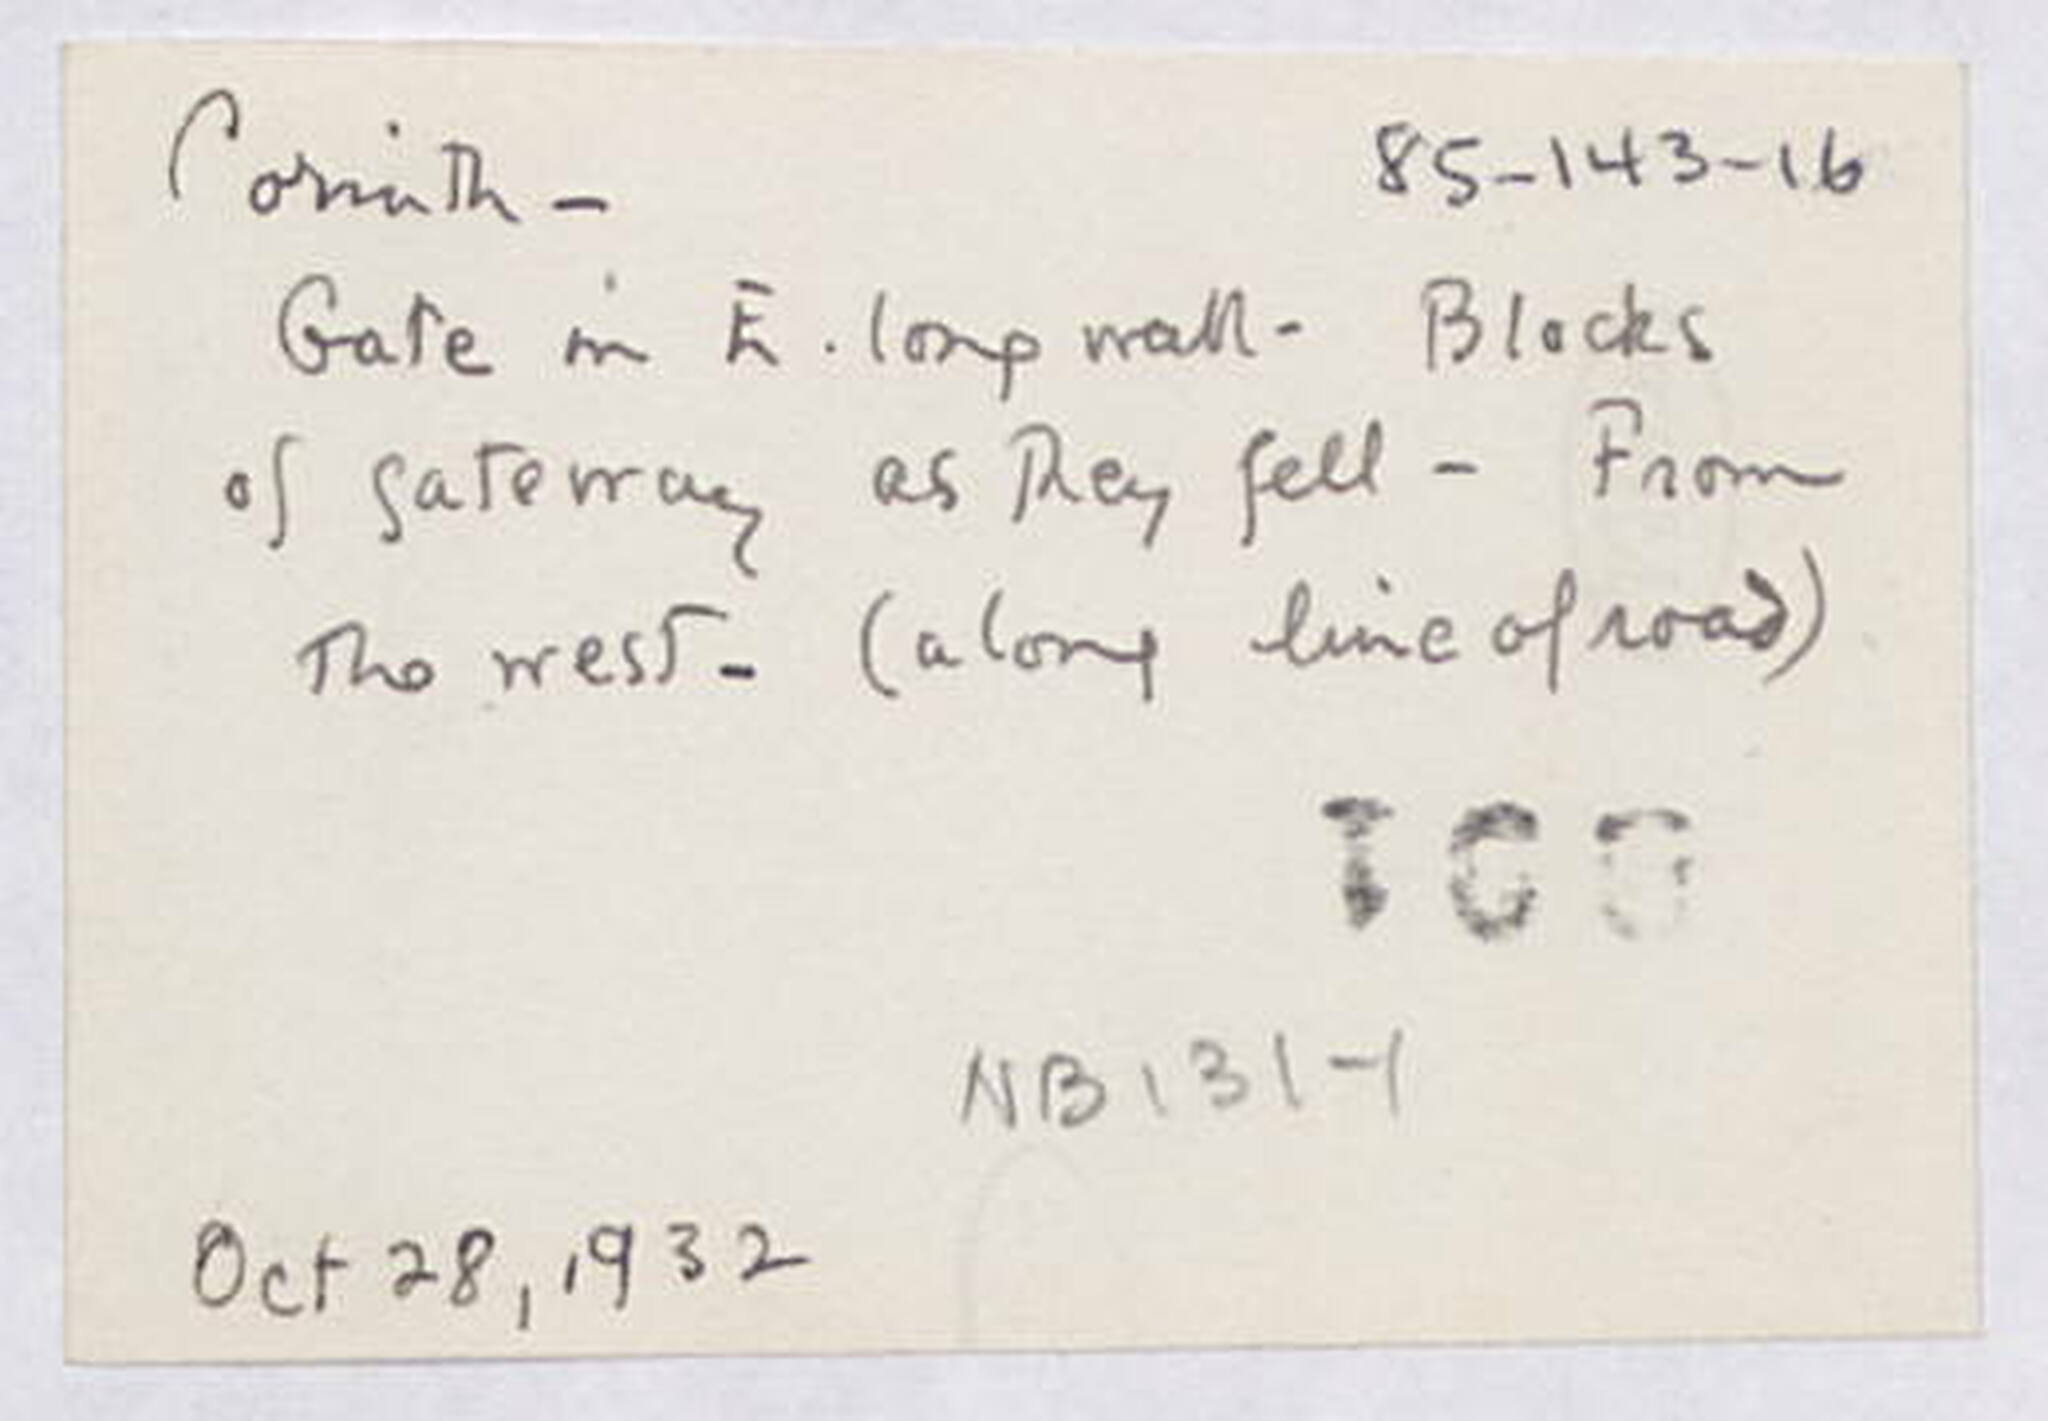 Corinth - 85-143-16
Gate in E. long wall - Blocks
of gateway as they fell - From
the west - (along line of road)
NB 131-1
Oct 28, 1932